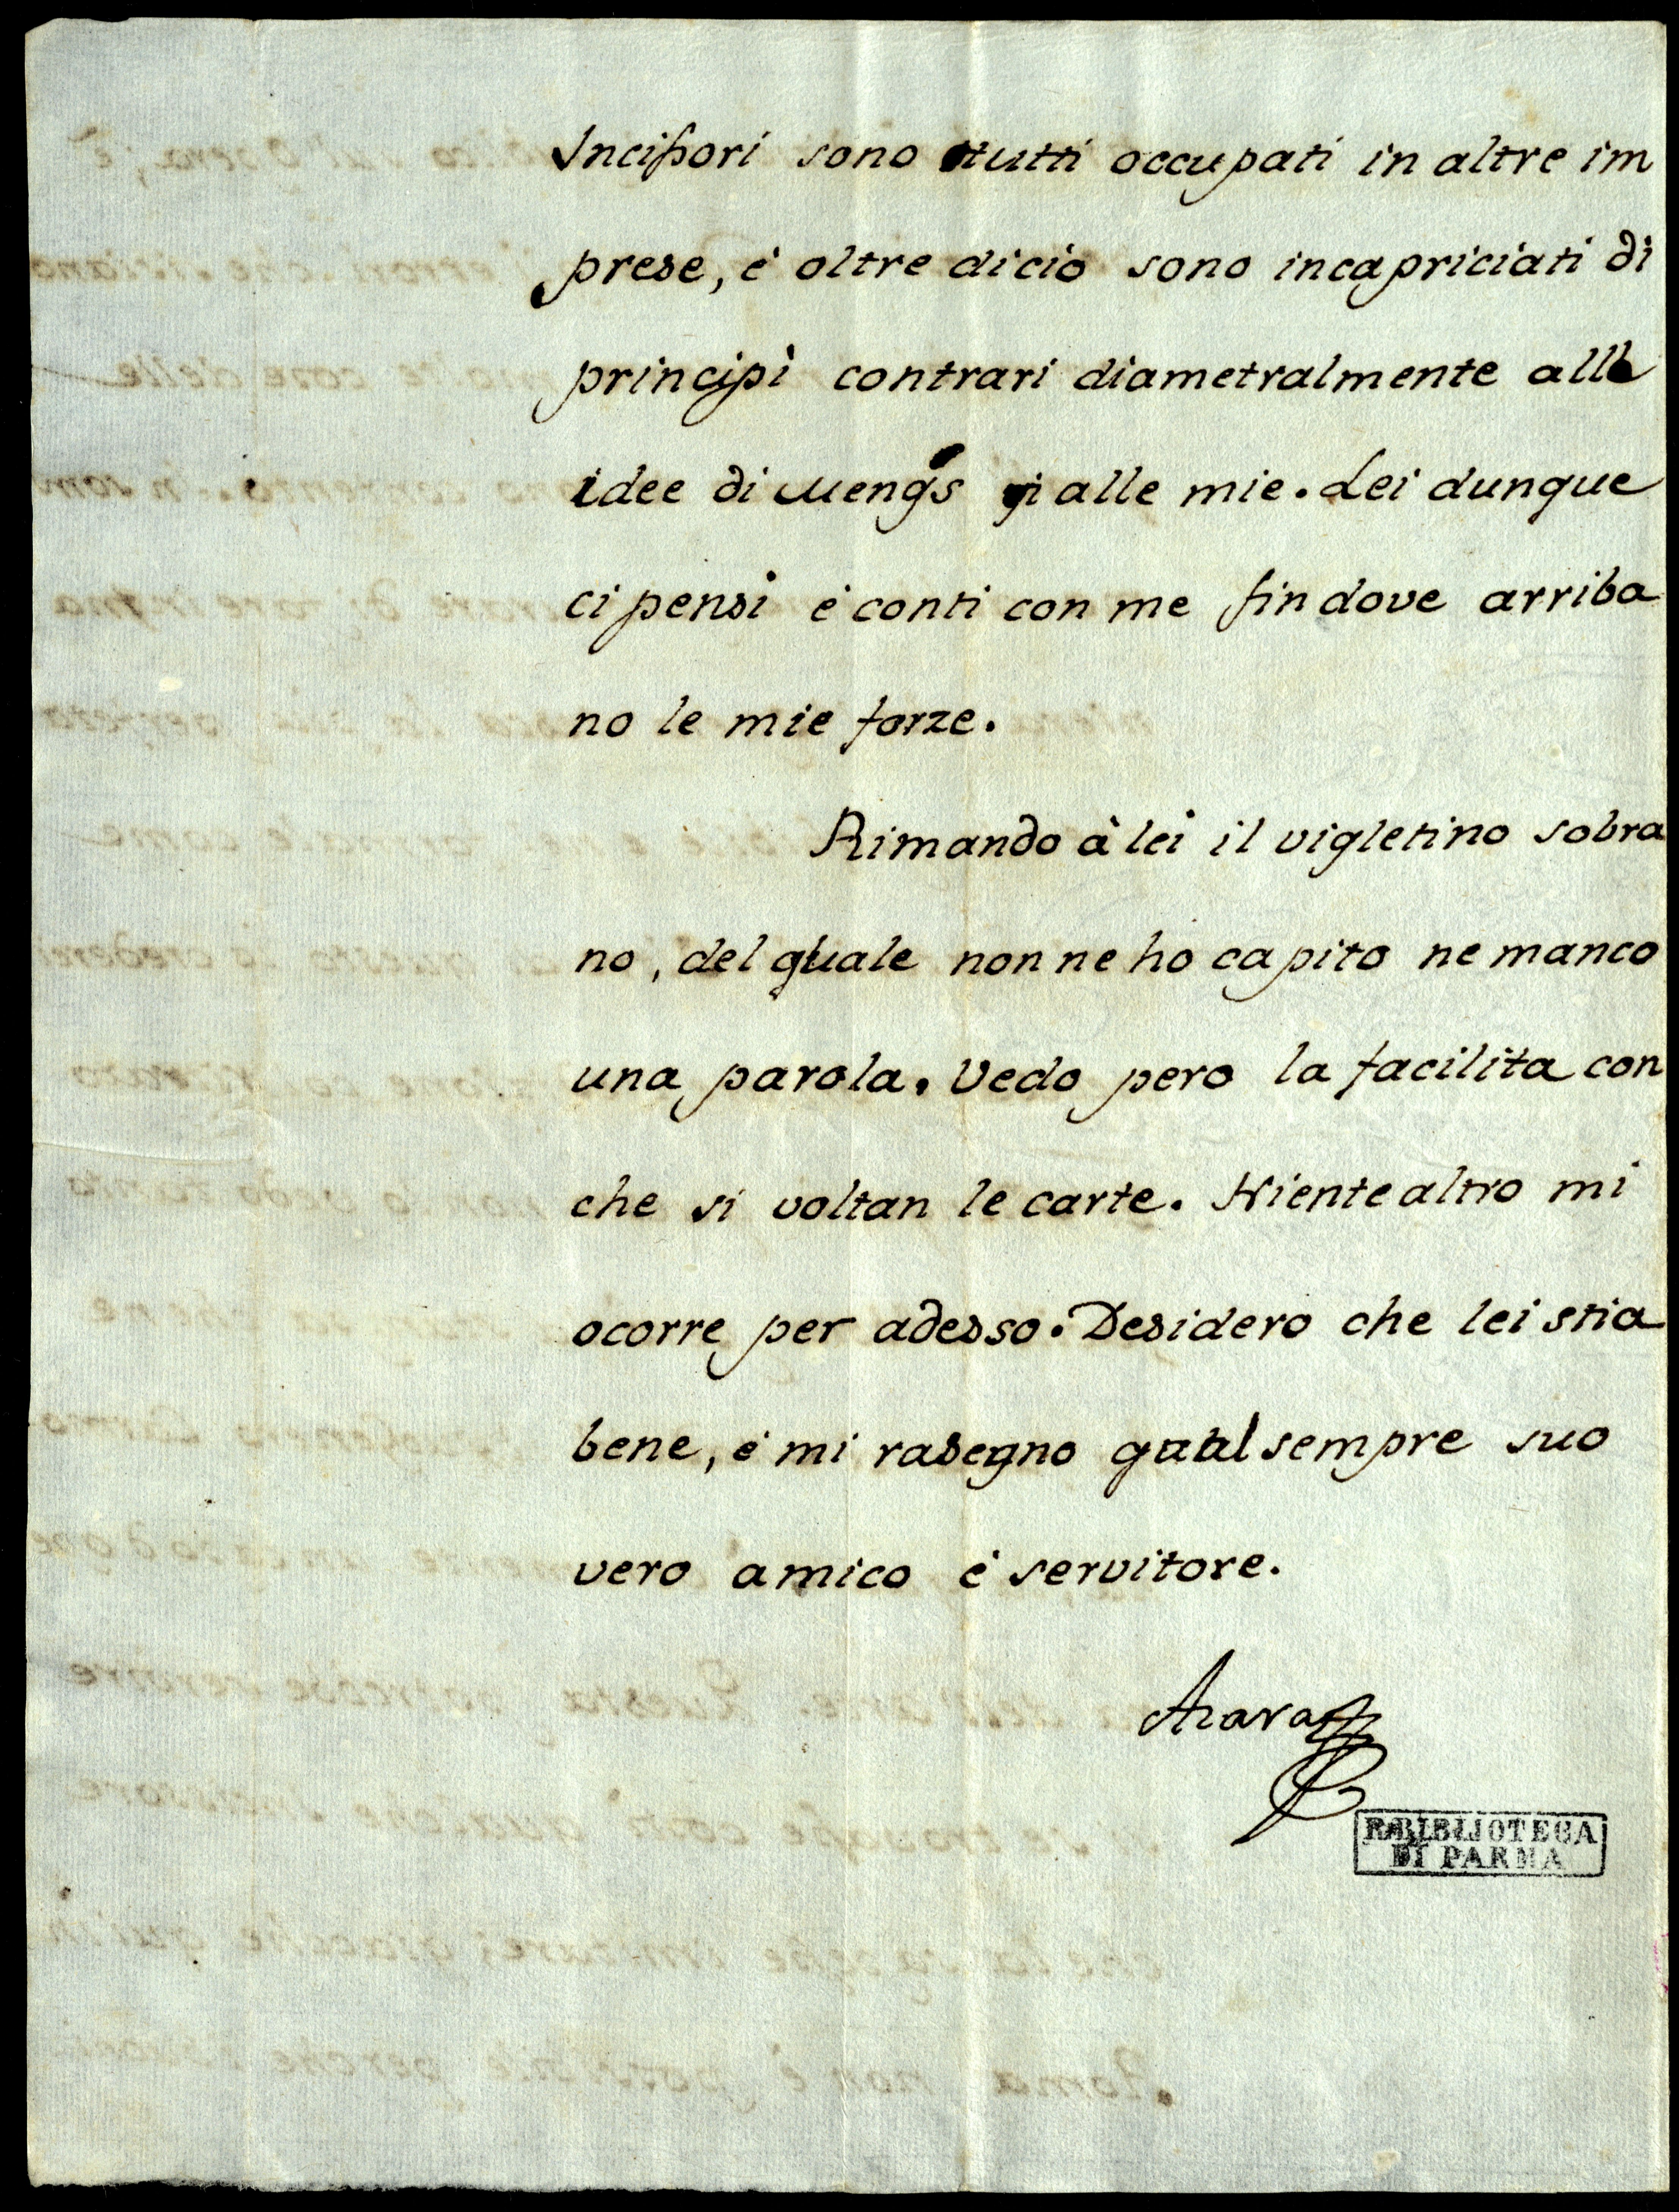 Incissori sono tutti occupati in altre im
prese, é oltre dicio sono incapriciati di
principi contrari diametralmente alle
idee di Mengs alle mie. Lei dunque
ci pensi é conti con me fin dove arriba
no le mie forze.
Rimando à lei il vigletino sobra
no, del quale non ne ho capito ne manco
una parola. Vedo pero la facilita con
che si voltan le carte. Niente altro mi
ocorre per adesso. Desidero che lei stia
bene, é mi rasegno qual sempre suo
vero amico é servitore.
Azara
R. BIBLIOTECA
DI PARMA